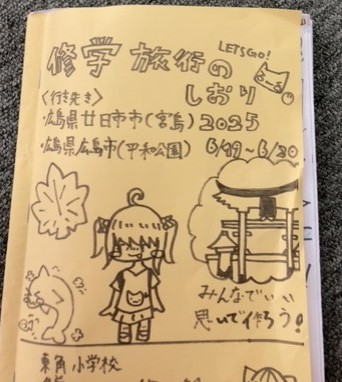 修学旅行の
LET'S GO!
しおり
〈行き先〉
広島県廿日市市(宮島) 2025
広島県広島市(平和公園) 6/19~6/20
みんなでいい
思いで作ろう!
東角小学校